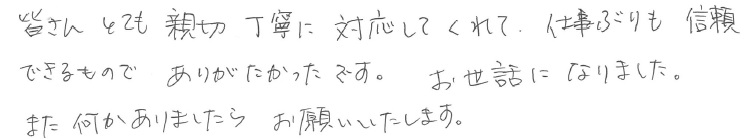 皆さん とても 親切 丁寧に 対応してくれて、仕事ぶりも 信頼
できるもので ありがたかったです。 お世話に なりました。
また 何かありましたら お願いいたします。